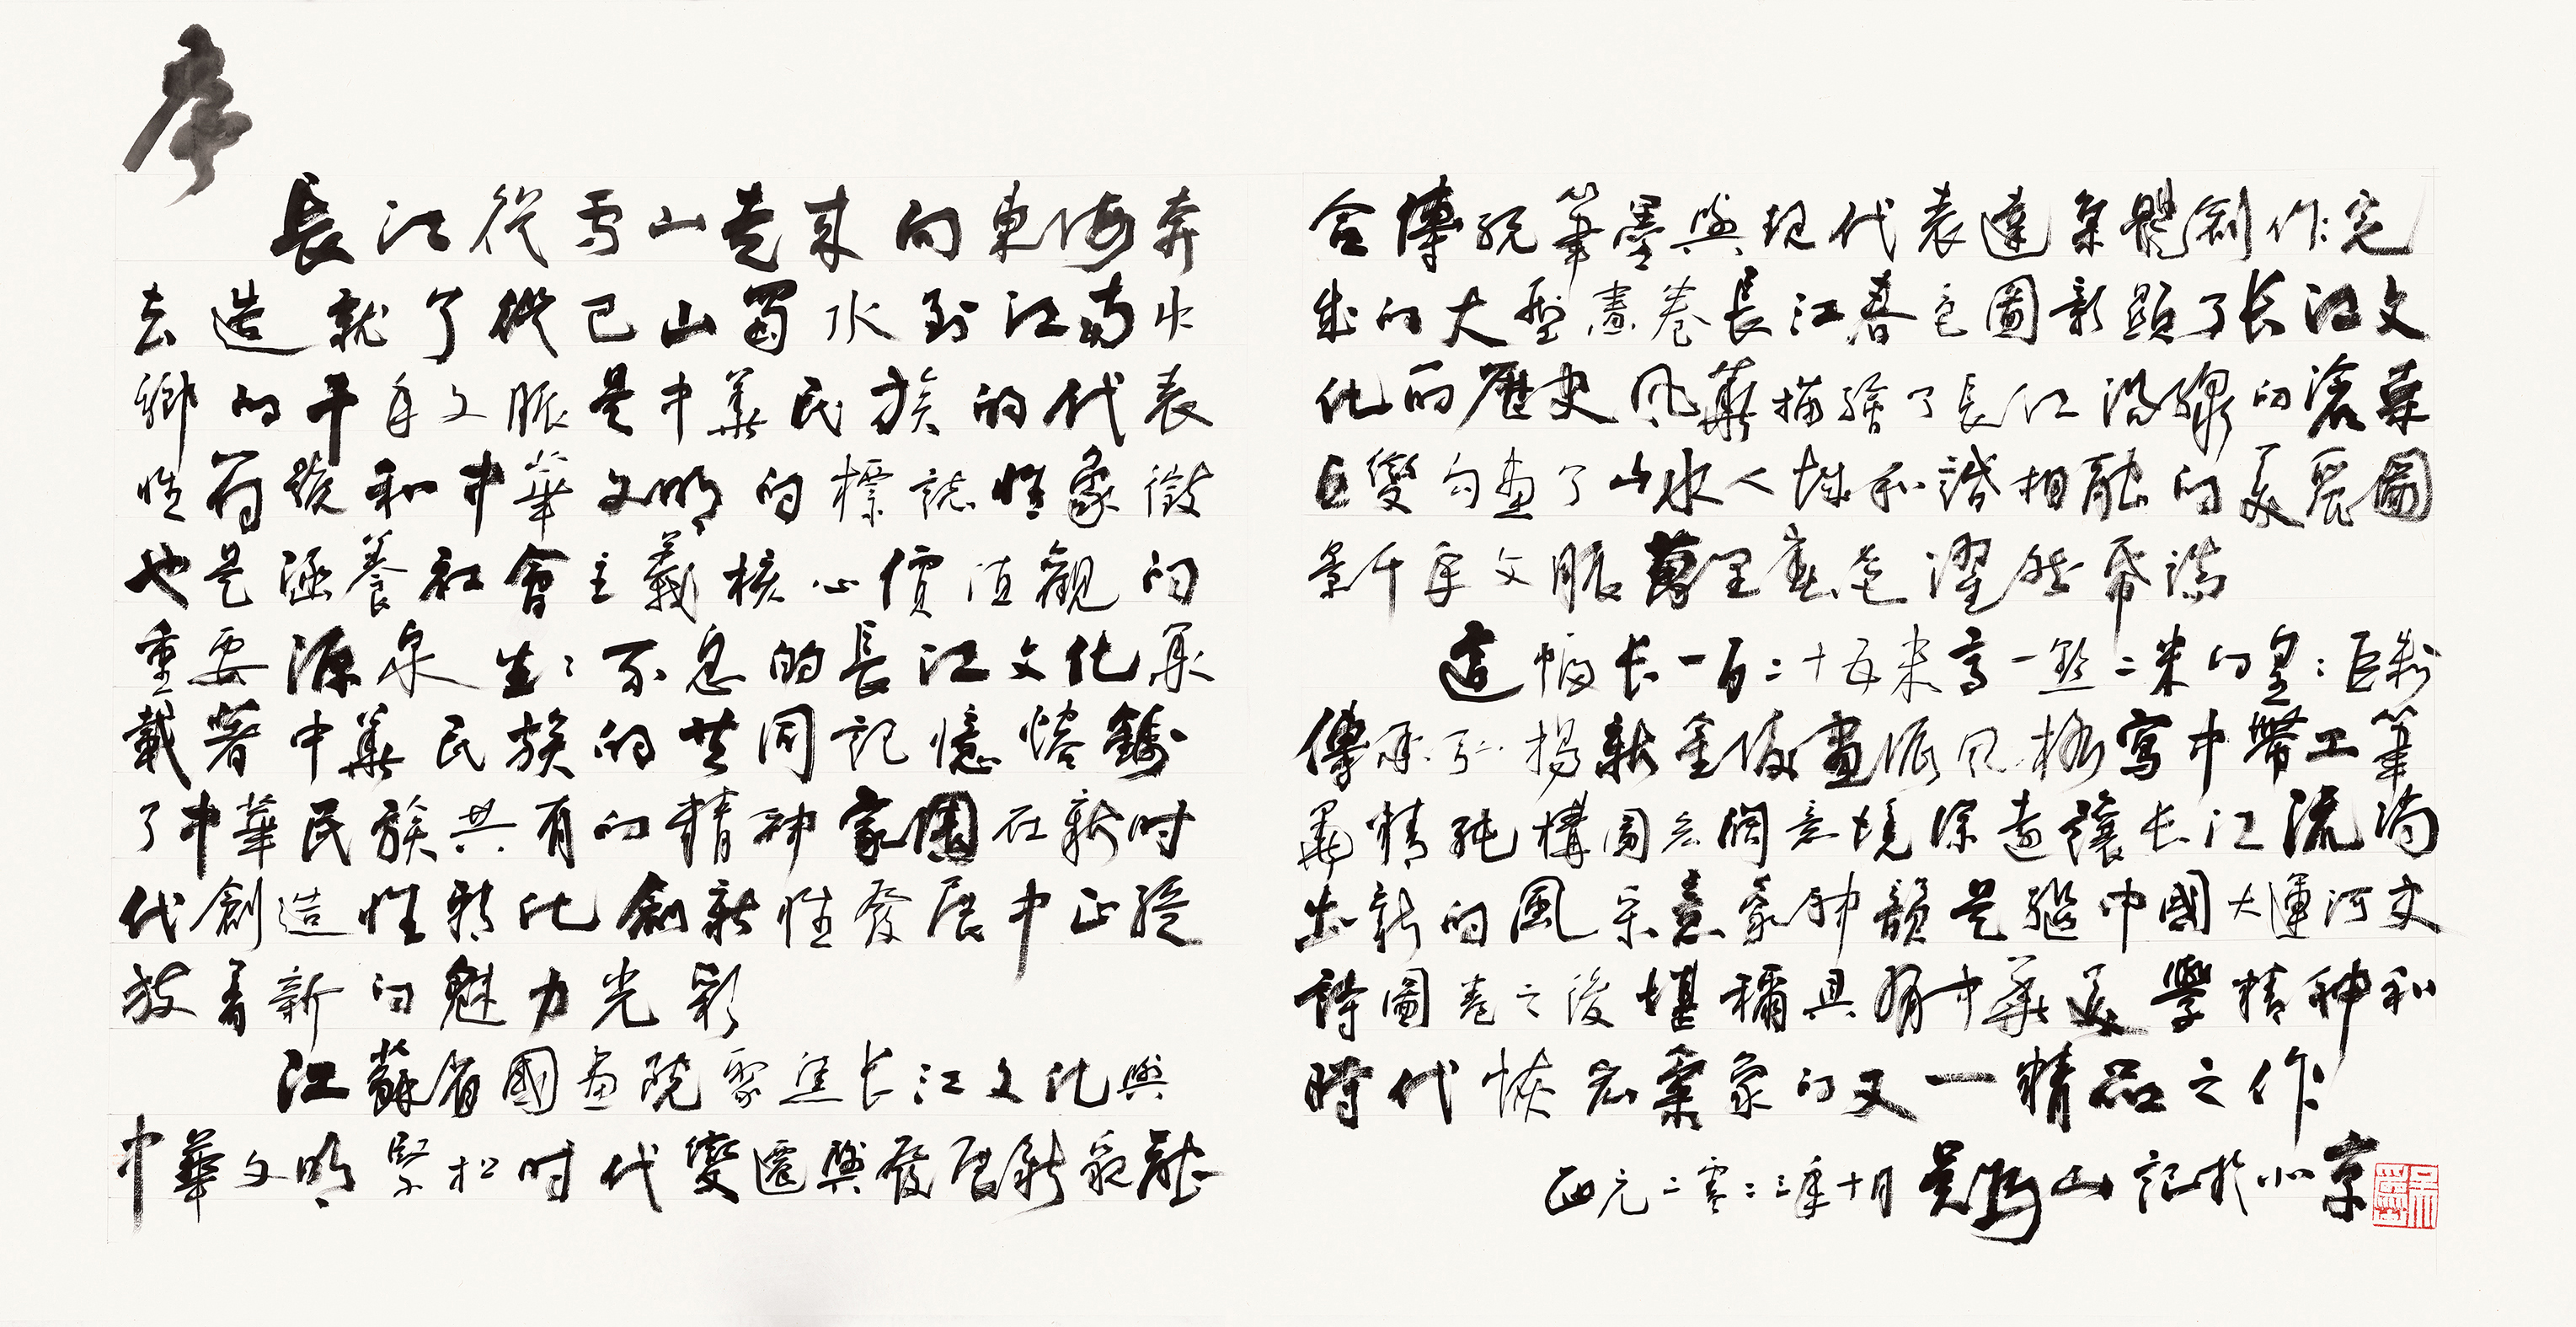 序
長江從雪山走來向東海奔
去造就了從巴山蜀水到江南水
鄉的千年文脈是中華民族的代表
性符號和中華文明的標誌性象徵
也是涵養社會主義核心價值觀的
重要源泉生〻不息的長江文化承
載著中華民族的共同記憶熔鑄
了中華民族共有的精神家園在新时
代創造性轉化創新性發展中正綻
放着新的魅力光彩
江蘇省國畫院聚焦长江文化與
中華文明緊扣时代變遷與發展新貌融
合傳統筆墨與現代表達集體創作完
成的大型畫卷長江春色圖彰顯了长江文
化的歷史風華描繪了長江沿線的滄桑
巨變勾畫了山水人城和諧相融的美麗圖
景千年文脈萬里春色躍然帋端
這幅长一百二十五米高一點二米的皇〻巨制
傳承弘揚新金陵畫派風格寫中帶工筆
墨精純構圖宏闊意境深遠讓长江流淌
出新的風采意象神韻是繼中國大運河史
詩圖卷之後堪稱具有中華美學精神和
時代恢宏氣象的又一精品之作
西元二零二三年十月吳為山記於北京